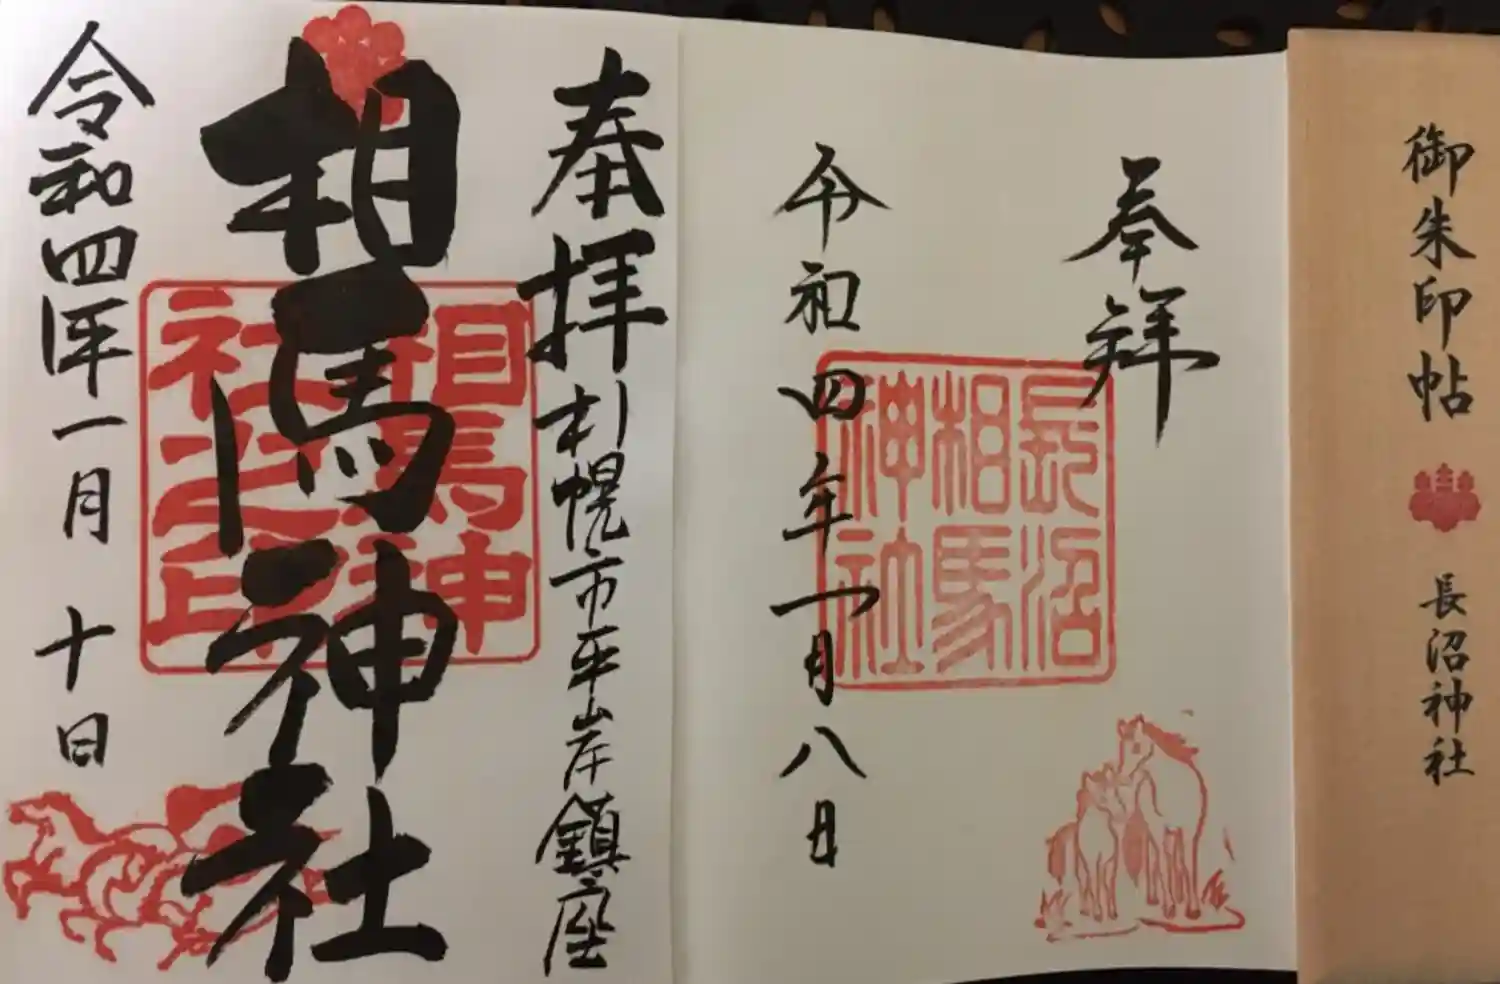 御朱印帖
長沼神社
奉拝
長沼
相馬
神社
令和四年一月八日
奉拝
札幌市平岸鎮座
相馬神社
相馬神
社之印
令和四年一月十日